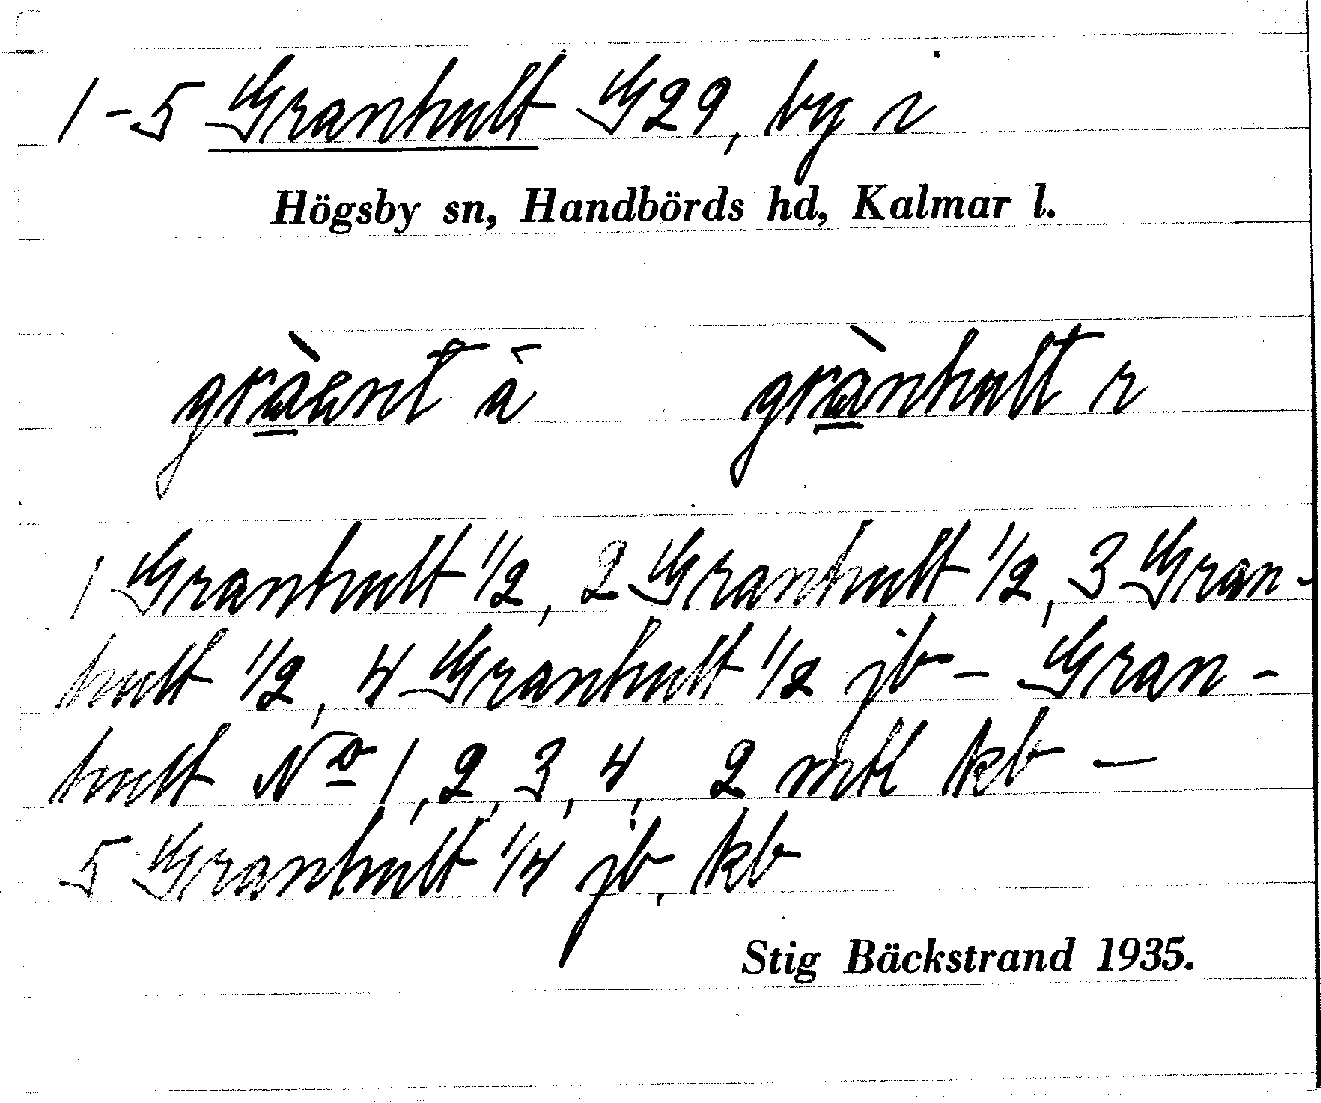 1-5 Granhult G29, by i
Högsby sn, Handbörds hd, Kalmar l.
grànhult r
1 Granhult 1/2, 2 Granhult 1/2, 3 Gran-
hult 1/2, 4 Granhult 1/2 jb - Gran-
hult No 1, 2, 3, 4, 2 mtl kb -
5 Granhult 1/4 jb, kb
Stig Bäckstrand 1935.